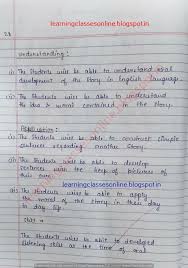 learningclassesonline.blogspot.in
Understanding :
(i) The Students will be able to understand oral
development of the story in English language.
(ii) The Students will be able to understand
the idea & moral contained in the story.
Application :
(i) The Students will be able to construct simple
sentences regarding another story.
(ii) The Students will be able to develop
sentences with the help of pictures of
their own.
learningclassesonline.blogspot.in
(iii) The Students will be able to apply
the moral of the story in their day
to day life.
Skill :-
The Students will be able to developed
listening skills as the time of oral